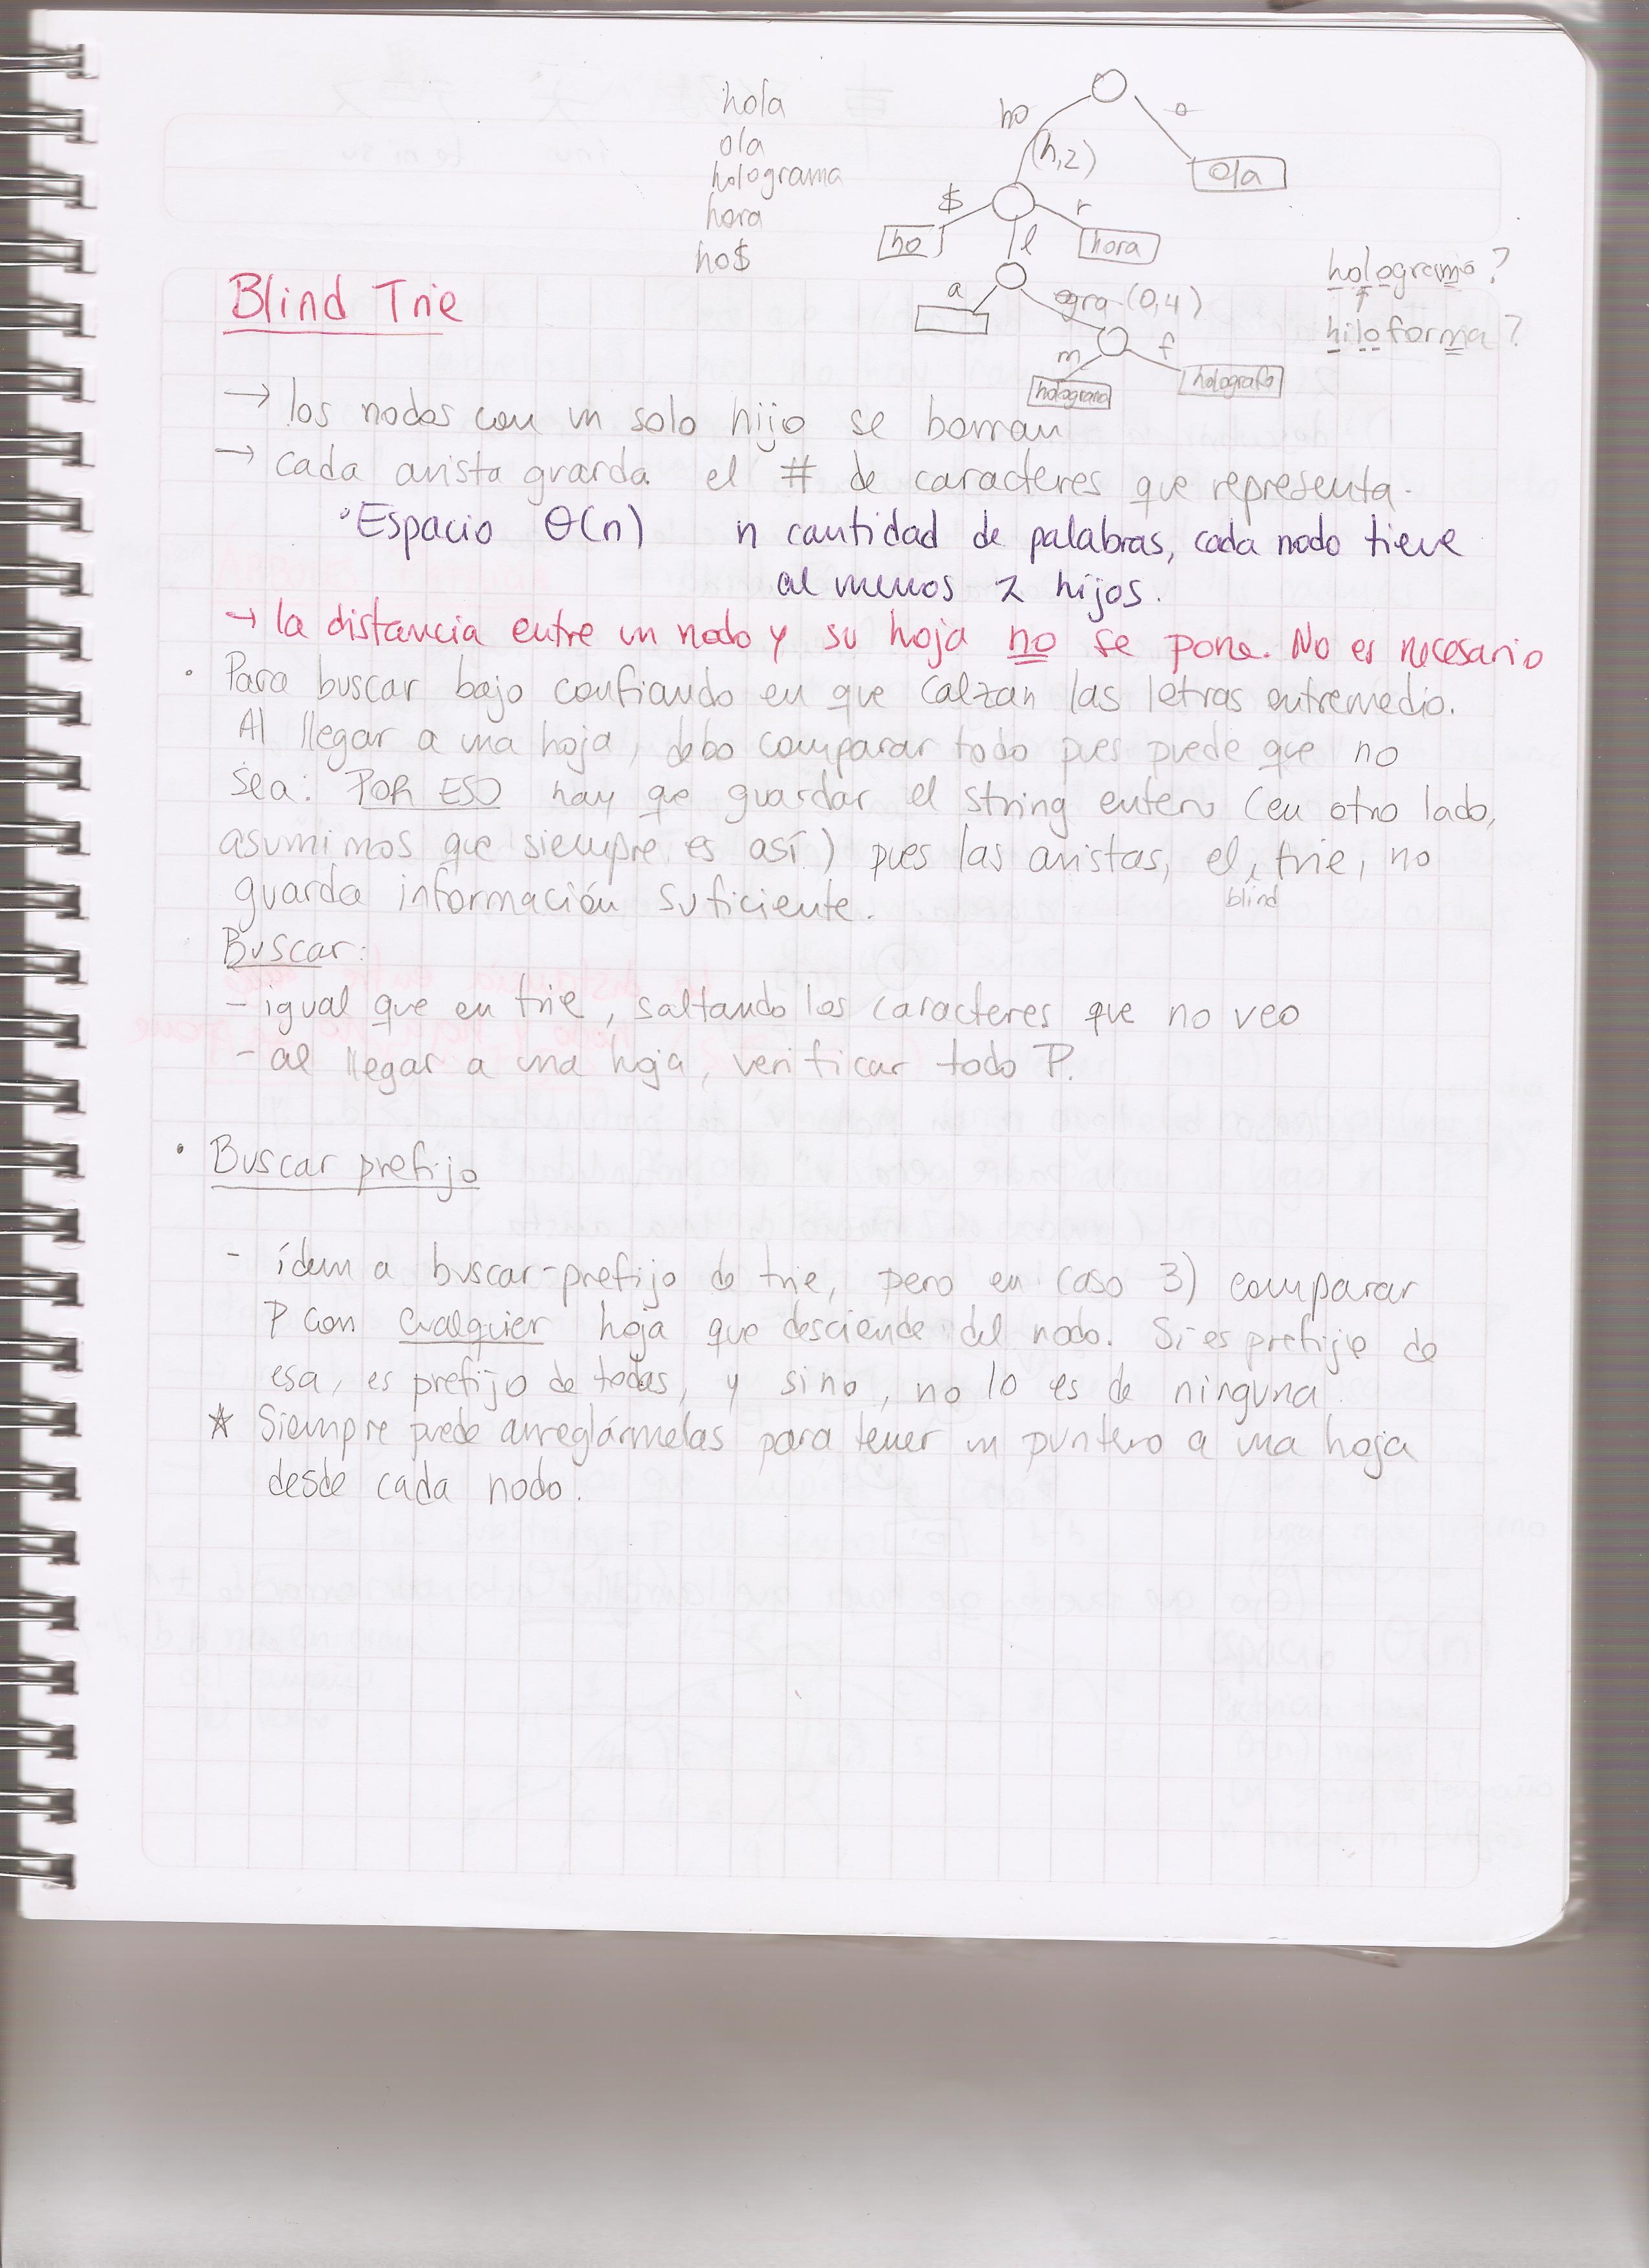 hola
ola
holograma
hora
ho$
ho
(h,2)
o
ola
$
r
ho
l
hora
a
ogra (o,4)
m
f
holograma
holografo
hologramo?
hiloforma?
Blind Trie
→ los nodos con un solo hijo se borran
→ cada arista guarda el # de caracteres que representa.
• Espacio Θ(n) n cantidad de palabras, cada nodo tiene
al menos 2 hijos.
→ la distancia entre un nodo y su hoja no se pone. No es necesario
• Para buscar bajo confiando en que calzan las letras entremedio.
Al llegar a una hoja, debo comparar todo pues puede que no
sea: POR ESO hay que guardar el string entero (en otro lado,
asumimos que siempre es así) pues las aristas, el trie, no
blind
guarda información suficiente.
Buscar:
- igual que en trie, saltando los caracteres que no veo
- al llegar a una hoja, verificar todo P.
• Buscar prefijo
- ídem a buscar-prefijo de trie, pero en caso 3) comparar
P con cualquier hoja que desciende del nodo. Si es prefijo de
esa, es prefijo de todas, y sino, no lo es de ninguna.
☆ Siempre puede arreglármelas para tener un puntero a una hoja
desde cada nodo.